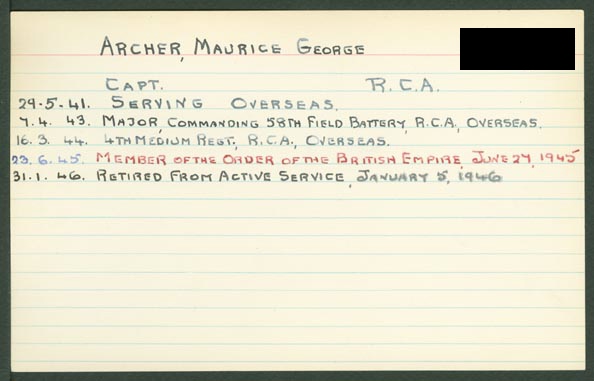 ARCHER, MAURICE GEORGE
CAPT. R.C.A.
29-5-41. SERVING OVERSEAS.
7.4.43. MAJOR, COMMANDING 58TH FIELD BATTERY, R.C.A., OVERSEAS.
16.3.44. 4TH MEDIUM REGT., R.C.A., OVERSEAS.
23.6.45. MEMBER OF THE ORDER OF THE BRITISH EMPIRE, JUNE 27, 1945
31.1.46. RETIRED FROM ACTIVE SERVICE, JANUARY 5, 1946